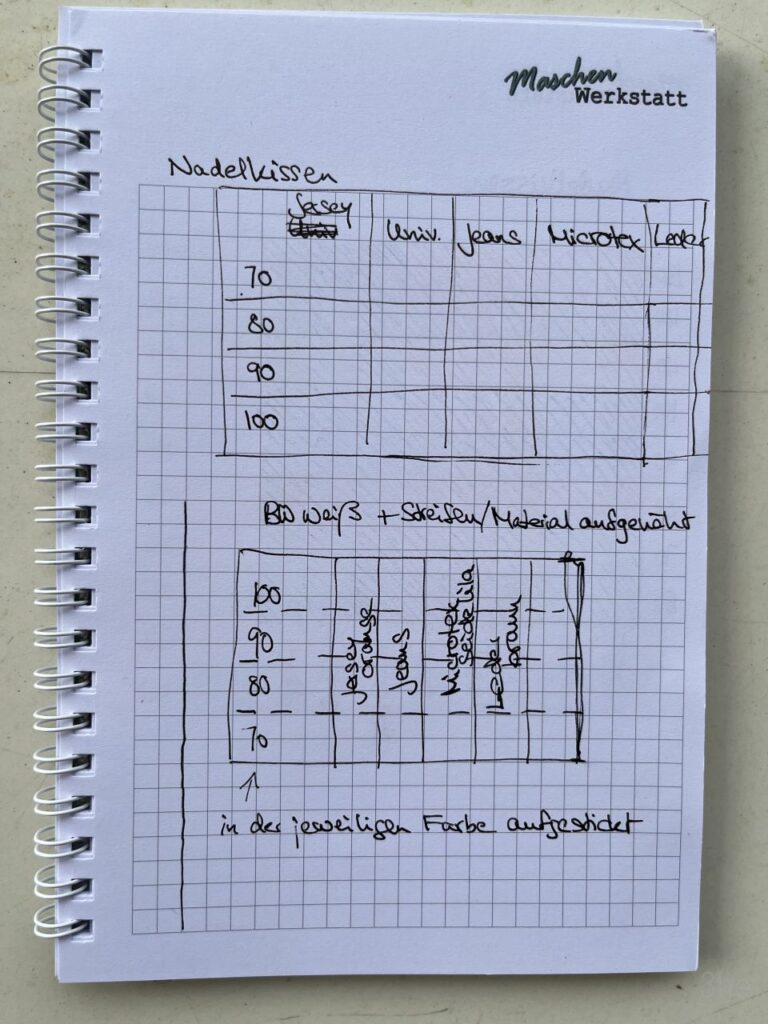 Maschen
Werkstatt
Nadelkissen
Jersey
Univ. Jeans Microtex Leder
70
80
90
100
BW weiß + Streifen/Material aufgenäht
100
90
80
70
Jersey
orange
Jeans
Microtex
Seide lila
Leder
braun
in der jeweiligen Farbe aufgestickt